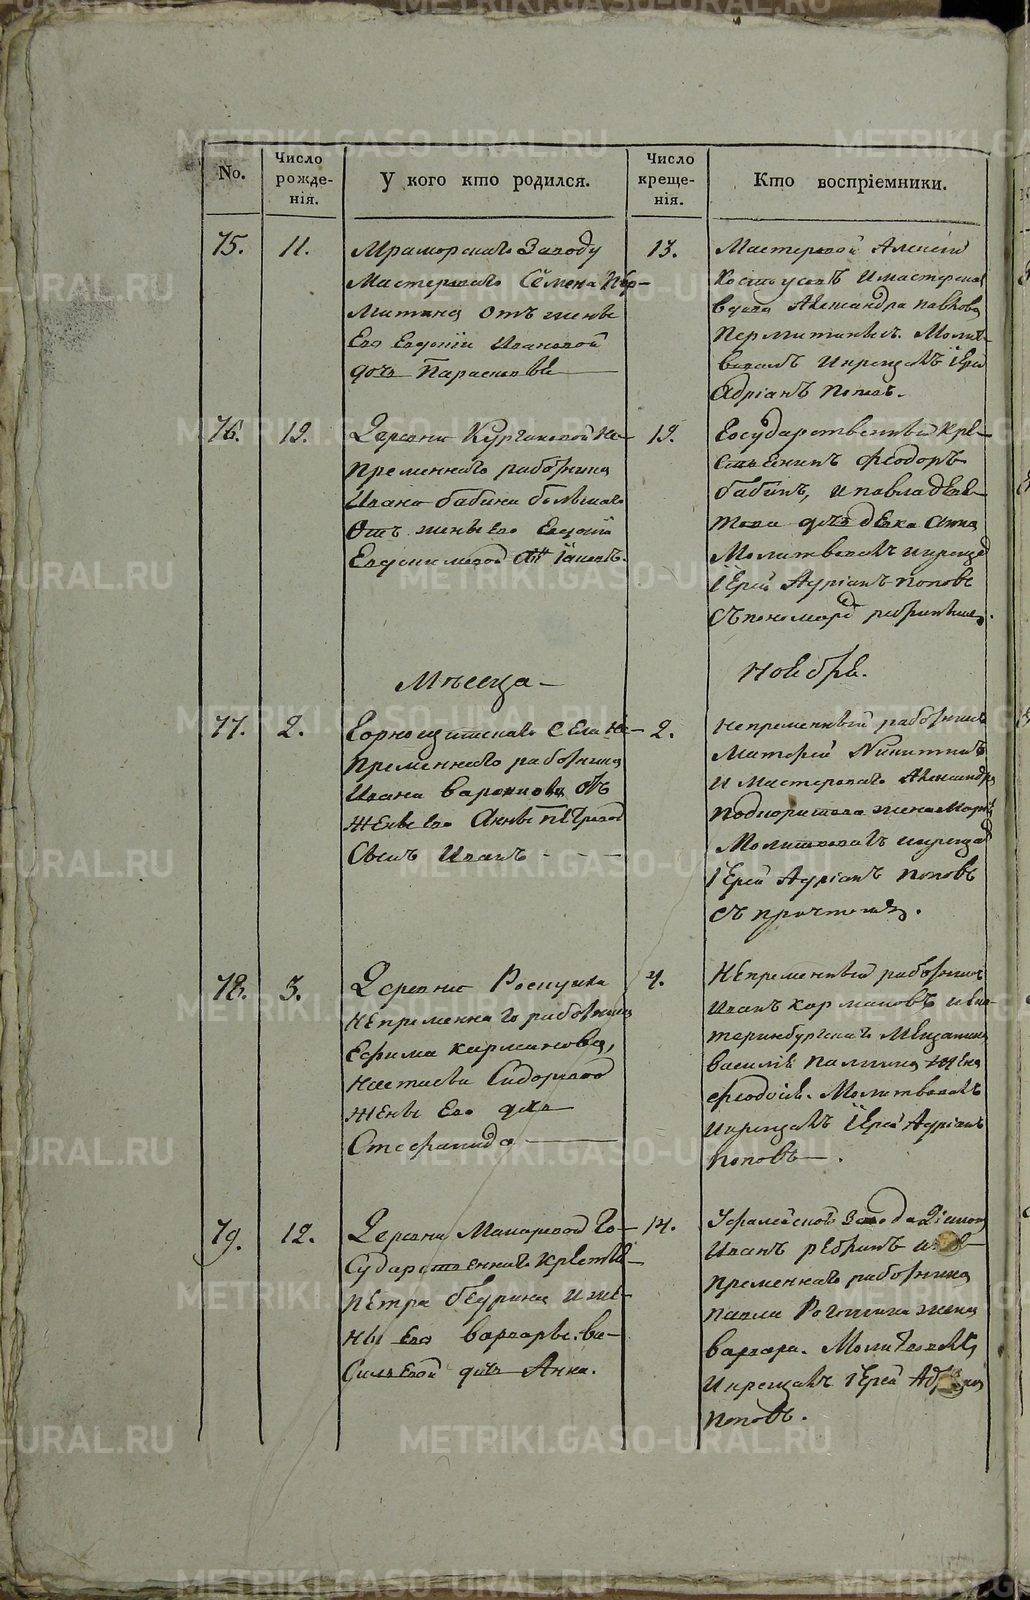 No.
Число рожде-нія.
У кого кто родился.
Число креще-нія.
Кто воспріемники.
75.
11.
Мраморскаго Заводу
Мастероваго Семена Пер-
митина отъ жены
Его Евдокіи Ивановой
дочь Параскева
13.
Мастеровой Алексѣй
и мастерска
вдова Александра
Молит-
вовалъ и крещалъ іерей
Адріанъ Поповъ.
76.
12.
Деревни Кургановой Не-
пременнаго работника
Ивана бабина большаго
отъ жены его Евдокіи
Евдокимовой
12.
Государственный кре-
стьенинъ Феодоръ
бабинъ, и
дочь девка Анна
Молитвовалъ и крещал
іерей Адріанъ Поповъ
съ пономаремъ
Мѣсеца
Ноебре.
77.
2.
Горнощитскаго Села Не-
пременнаго работника
Ивана Воронцова отъ
жены его Анны Петровой
Сынъ Иванъ
2.
Непременный работникъ
Матфей Никитинъ
и Мастероваго Александра
жена Марья
Молитвовалъ и крещал
іерей Адріанъ Поповъ
съ причтомъ.
78.
3.
Деревни Роспутка
непременнаго работника
Ефима Карманова,
Настасьи Сидоровой
жены его дочь
Стефанида
4.
Непременный работникъ
Иванъ кармановъ и ека-
теринбургскаго Мещанина
Василія Палкина жена
Феодосія. Молитвовалъ
и крещалъ іерей Адріанъ
Поповъ.
79.
12.
Деревни Макаровой Го-
сударственнаго крестья-
Петра бедрина и же-
ны его Варвары Ва-
сильевой дочь Анна.
14.
Уфалейской завода
Иванъ
пременнаго работника
Павла жена
Варвара. Молитвовалъ
и крещалъ іерей Адріан
Поповъ.
METRIKI.GASO-URAL.RU